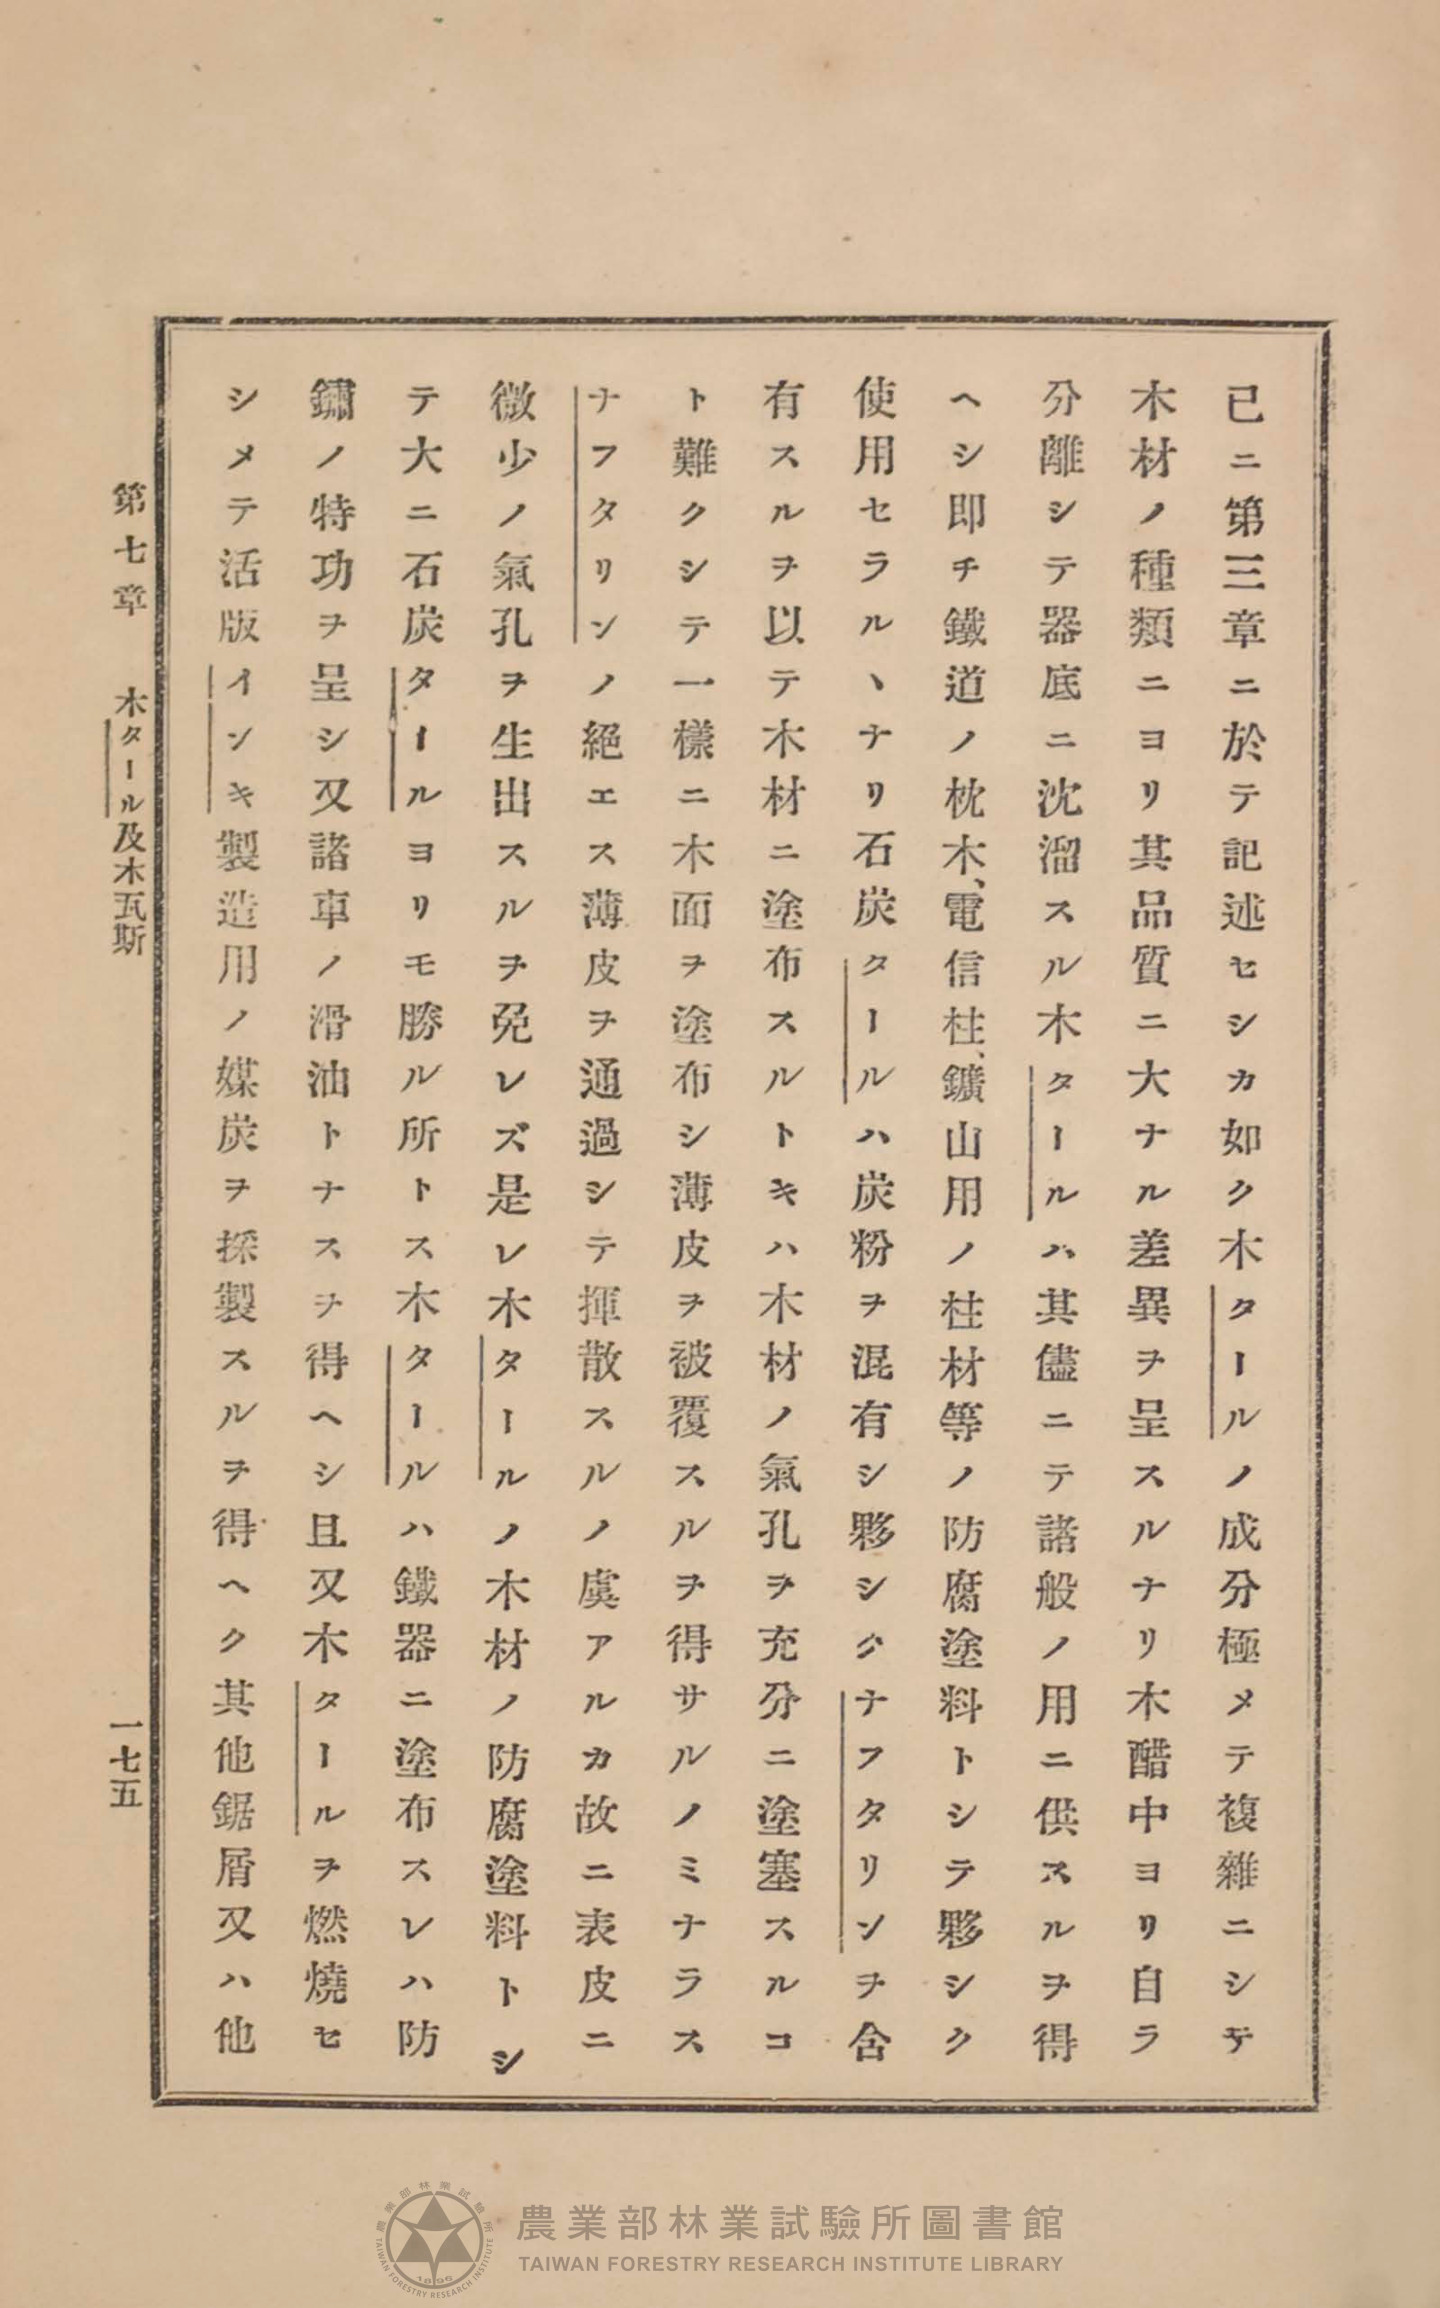 已ニ第三章ニ於テ記述セシカ如ク木タールノ成分極メテ複雜ニシテ
木材ノ種類ニヨリ其品質ニ大ナル差異ヲ呈スルナリ木醋中ヨリ自ラ
分離シテ器底ニ沈溜スル木タールハ其儘ニテ諸般ノ用ニ供スルヲ得
ヘシ即チ鐵道ノ枕木、電信柱、鑛山用ノ柱材等ノ防腐塗料トシテ夥シク
使用セラルヽナリ石炭タールハ炭粉ヲ混有シ夥シクナフタリンヲ含
有スルヲ以テ木材ニ塗布スルトキハ木材ノ氣孔ヲ充分ニ塗塞スルコ
ト難クシテ一樣ニ木面ヲ塗布シ薄皮ヲ被覆スルヲ得サルノミナラス
ナフタリンノ絕エス薄皮ヲ通過シテ揮散スルノ虞アルカ故ニ表皮ニ
微少ノ氣孔ヲ生出スルヲ免レズ是レ木タールノ木材ノ防腐塗料トシ
テ大ニ石炭タールヨリモ勝ル所トス木タールハ鐵器ニ塗布スレハ防
鏽ノ特功ヲ呈シ又諸車ノ滑油トナスヲ得ヘシ且又木タールヲ燃燒セ
シメテ活版インキ製造用ノ媒炭ヲ採製スルヲ得ヘク其他鋸屑又ハ他
第七章 木タール及木瓦斯
一七五
農業部林業試驗所圖書館
TAIWAN FORESTRY RESEARCH INSTITUTE LIBRARY
農業部林業試驗所
TAIWAN FORESTRY RESEARCH INSTITUTE
1896